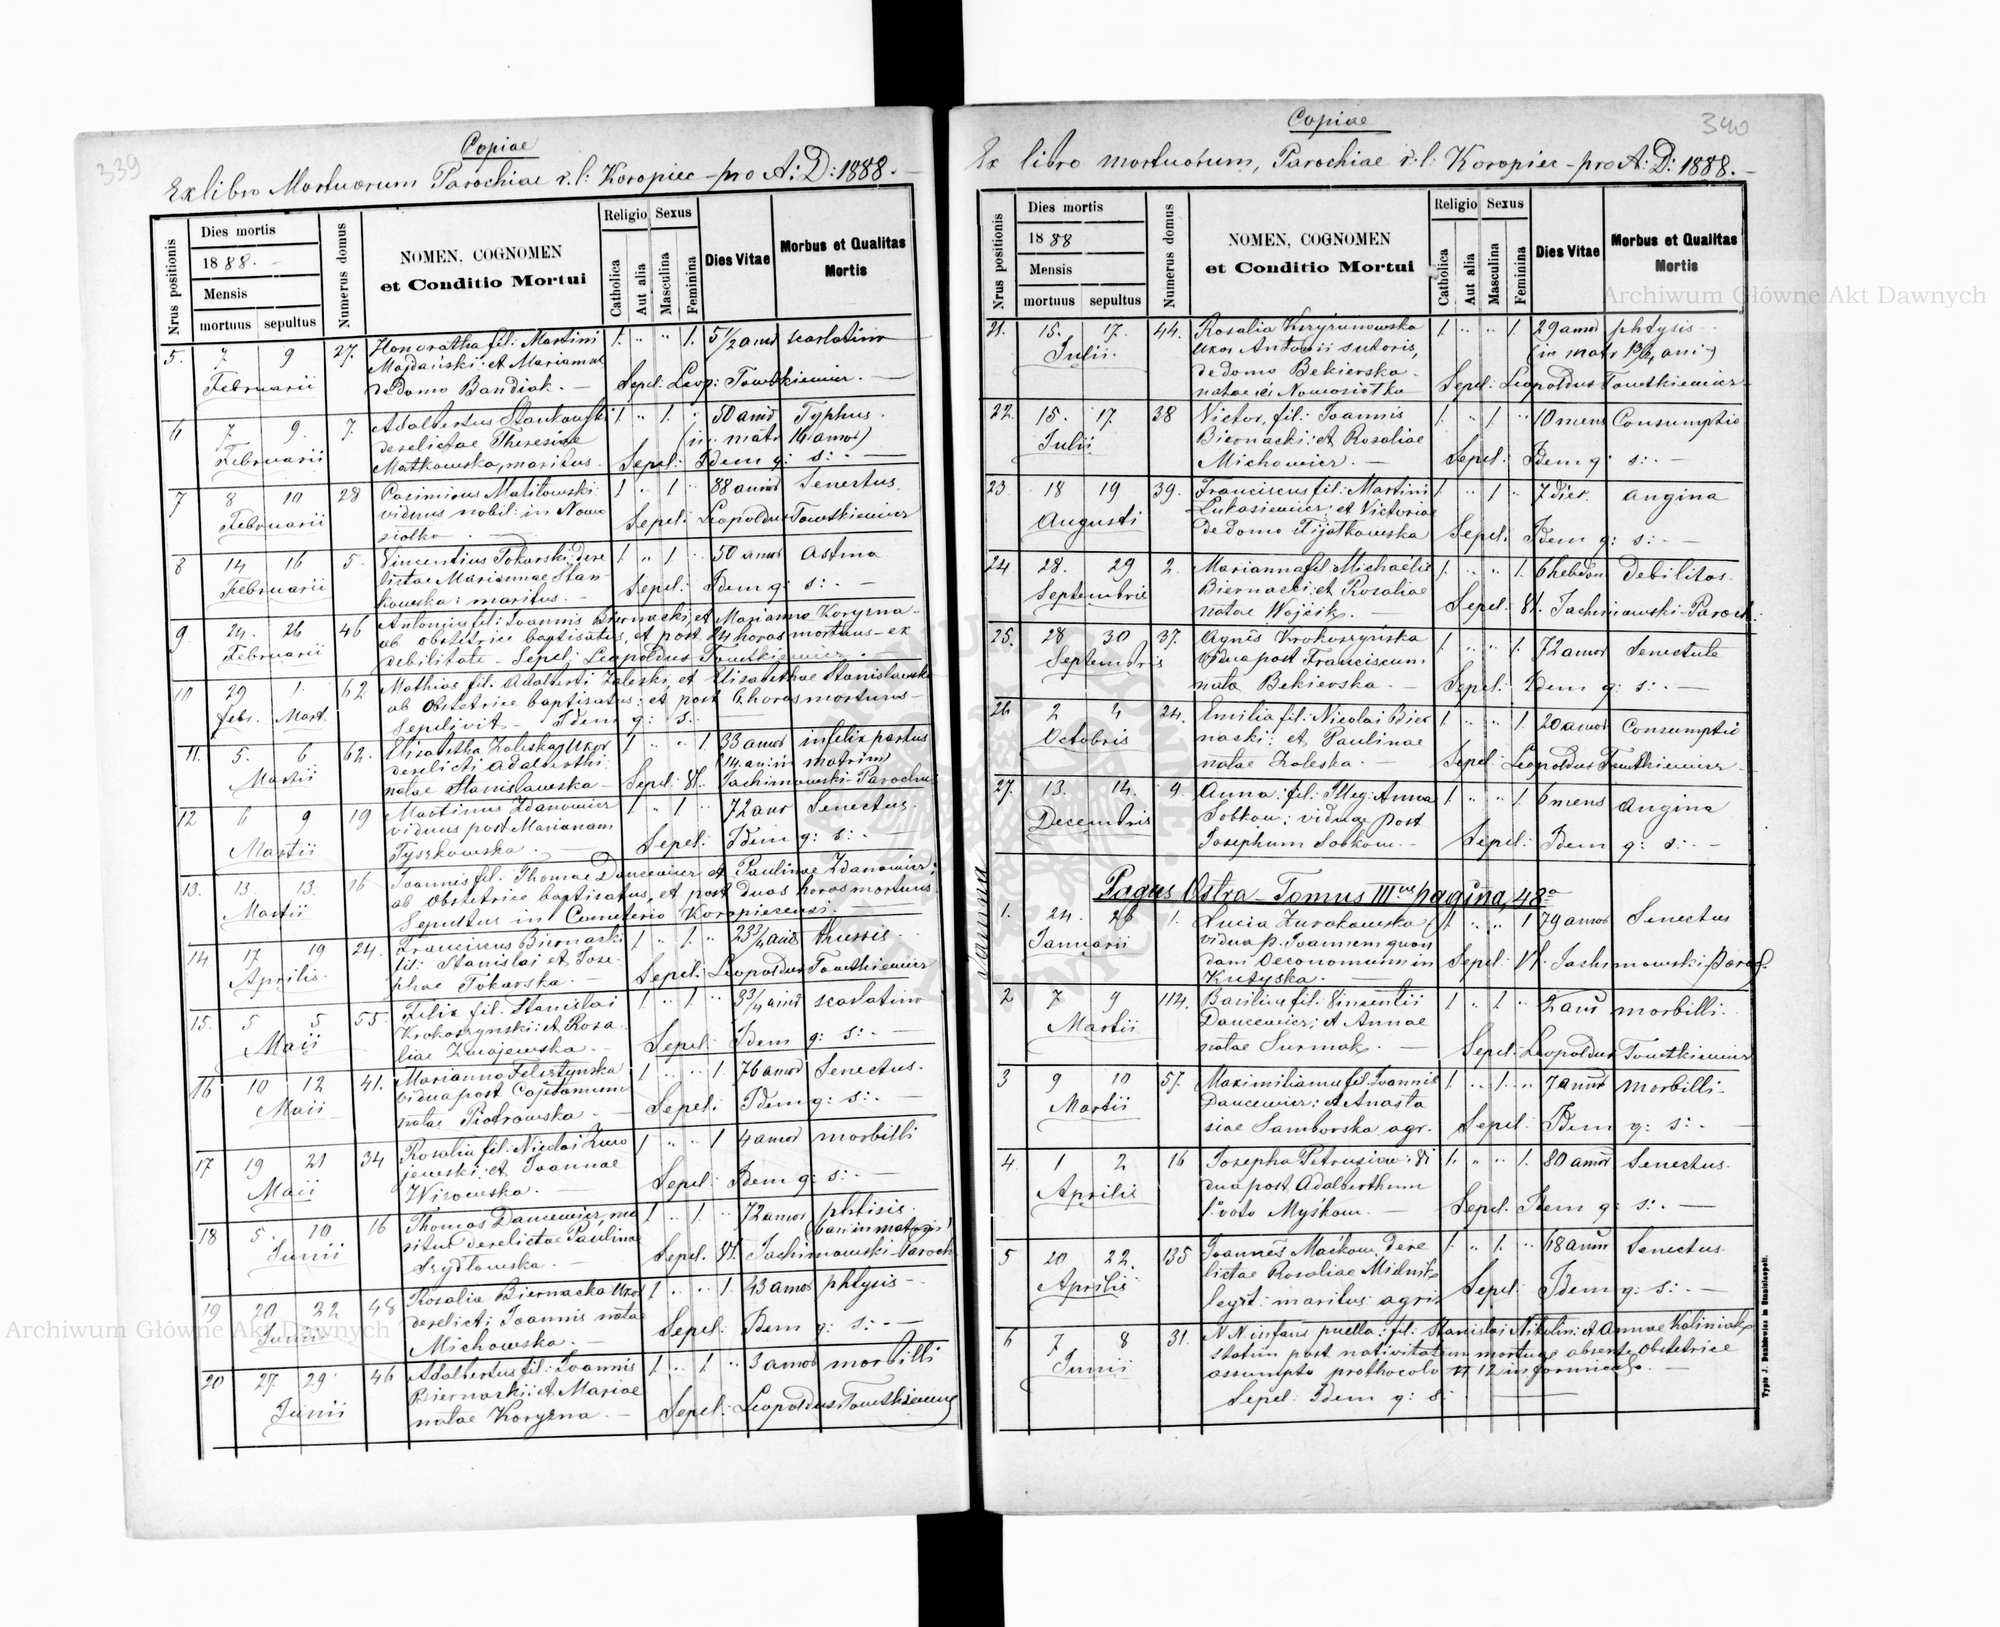 339
Copiae
Ex libro Mortuorum Parochiae r. l: Koropiec pro A: D: 1888.
Nrus positionis
Dies mortis
1888.
Mensis
mortuus sepultus
Numerus domus
NOMEN, COGNOMEN
et Conditio Mortui
Religio Sexus
Catholica
Aut alia
Masculina
Feminina
Dies Vitae
Morbus et Qualitas
Mortis
5. 7 9 27. Honoratha fil: Martini 1. " " 1. 5 1/2 annor scarlatina
Februarii Majdański: et Mariannae
de domo Bandiak. — Sepel: Leop: Towtkiewicz. —
6 7 9. 7. Adalbertus Stankowski 1 " 1. " 50 annor Typhus.
Februarii derelictae Theresiae (in matr 16 annor)
Matkowska, maritus. Sepel: Idem q: s: . —
7 8 10 28 Casimirus Malitowski 1 " 1 " 88 annor Senectus.
Februarii viduus nobil: in Nowo
siolko Sepel: Leopoldus Towtkiewicz
8 14 16 5. Vincentius Tokarski: dere 1. " 1. " 50 annor Astma
Februarii lictae Mariannae Stan-
kowska: maritus. — Sepel: Idem q: s: . —
9. 24. 26 46 Antonius fil: Joannis Biernacki, et Marianna Koryzna.
Februarii ab obstetrice baptisatus, et post 24 horas mortuus - ex
debilitate - Sepel: Leopoldus Towtkiewicz.
10 29 1. 62 Mathias fil: Adalberti Zaleski, et Elisabethae Stanislawska
Febr. Mart. ab obstetrice baptisatus: et post 6 horas mortuus -
Sepelivit - Idem q: s:
11. 5. 6 62. Elisabetha Zaleska, uxor 1 " " 1. 33 annor infelix partus
Martii derelicti Adalberthi (14. an: in matrim)
natae Stanislawska - Sepel: Vl. Jachimowski - Parochus
12 6 9 19 Martinus Zdanowicz 1 " 1 " 72 anor Senectus.
Martii viduus post Mariannam
Tyszkowska. Sepel: Idem q: s: . —
13. 13. 13. 16 Joannes fil: Thomae Dancewicz et Paulinae Zdanowicz:
Martii ab obstetrice baptisatus, et post duas horas mortuus.
Sepultus in Cemeterio Koropiecensi.
14 17 19 24. Franciscus Biernacki 1 " 1. " 2 3/4 annor thussis.
Aprilis. fil: Stanislai et Jose-
phae Tokarska. Sepel: Leopoldus Towtkiewicz
15. 5 5 55. Felix fil. Stanislai 1 " 1 " 3 3/4 annor scarlatina
Maii Krokoszynski: et Rosa-
liae Zmojewska. Sepel: Idem q: s: . —
16 10 12 41. Marianna Felsztynska 1 " " 1 76 annor Senectus.
Maii vidua post Cajetanum
natae Piotrowska - Sepel: Idem q: s: . —
17 19 21 34 Rosalia fil: Nicolai Zmo 1 " " 1 4 annor morbilli
Maii jewski: et Joannae
Wirowska. — Sepel: Idem q: s: . —
18 5. 10 16 Thomas Dancewicz, ma 1 " 1. " 72 annor phtisis.
Junii ritus derelictae Paulinae
Szydłowska. — Sepel. Vl. Jachimowski - Paroch
19 20 22 48 Rosalia Biernacka uxor 1 " " 1. 43 annor phtysis -
Junii derelicti Joannis natae
Michowska. — Sepel: Idem q: s: . —
20 27. 29. 46 Adalbertus fil: Joannis 1. " 1 " 3 annor morbilli
Junii Biernacki: et Mariae
natae Koryzna. — Sepel: Leopoldus Towtkiewicz
340
Copiae
Ex libro mortuorum, Parochiae r: l: Koropiec - pro A: D: 1888.
Nrus positionis
Dies mortis
1888
Mensis
mortuus sepultus
Numerus domus
NOMEN, COGNOMEN
et Conditio Mortui
Religio Sexus
Catholica
Aut alia
Masculina
Feminina
Dies Vitae
Morbus et Qualitas
Mortis
21. 15. 17. 44. Rosalia 1. " " 1. 29 annor phtysis
Julii. uxor Antonii sutoris,
de domo Bekierska.
natae Sepel: Leopoldus Towtkiewicz
22. 15. 17. 38 Victor, fil: Joannis 1. " 1. " 10 mens Consumptio
Julii Biernacki: et Rosaliae
Michowicz. — Sepel: Idem q: s: . —
23. 18 19 39. Franciscus fil: Martini 1. " 1 " 7 dier. angina
Augusti Lukasiewicz: et Victoriae
de domo Pijatkowska Sepel: Idem q: s: . —
24 28. 29 2. Marianna fil: Michaëlis 1. " " 1. 6 hebdom debilitas.
Septembris Biernacki: et Rosaliae
natae Wojcik. — Sepel: Vl. Jachimowski - Paroch.
25. 28 30 37. Agnes Krokoszyńska 1. " " 1. 72 annor Senectute
Septembris vidua post Franciscum
nata Bekierska. — Sepel: Idem q: s: . —
26 2 4 24. Emilia fil: Nicolai Bier 1 " " 1. 20 annor Consumptio
Octobris naski: et Paulinae
natae Zaleska. — Sepel: Leopoldus Towtkiewicz.
27. 13. 14. 9. Anna: fil: Illeg: Anna 1. " " 1. 6 mens Angina
Decembris Sobkow: viduae post
Josephum Sobkow. — Sepel: Idem q: s: . —
Pagus Ostra - Tomus III us pagina, 48 a
1. 24. 26 1. Lucia Zurakowska 1. " " 1 79 annor Senectus
Januarii vidua p. Joannem quon
dam Oeconomum in
Krutyska. — Sepel: Vl. Jachimowski - Paroch.
2 7 9 114. Basilius fil: Vincentii 1 " 1 " 2 ann morbilli.
Martii Dancewicz: et Annae
natae Surmak. — Sepel: Leopoldus Towtkiewicz
3 9 10 57. Maximilianus fil. Joannis 1. " 1. " 7 annor morbilli -
Martii Dancewicz: et Anasta
siae Samborska agr. Sepel: Idem q: s: . —
4. 1 2 16 Josepha Petrusiew: vi 1. " " 1. 80 annor Senectus.
Aprilis dua post Adalberthum
1: voto Myśkow. — Sepel: Idem q: s: . —
5 20 22. 135 Joannes Maćkow, Dere 1. " 1. " 68 annor Senectus.
Aprilis lictae Rosaliae Mielnik
legit: maritus. agri: Sepel: Idem q: s: . —
6 7 8 31. N N infans puella: fil: Stanislai Nikelin: et Annae Kaliniak
Junii statim post nativitatem mortua absente obstetrice
assumpto prothocolo N 12 in fornical. —
Sepel: Idem q: s:
Typis J. Dankiewicz in Stanislaopoli.
Archiwum Główne Akt Dawnych
Archiwum Główne Akt Dawnych